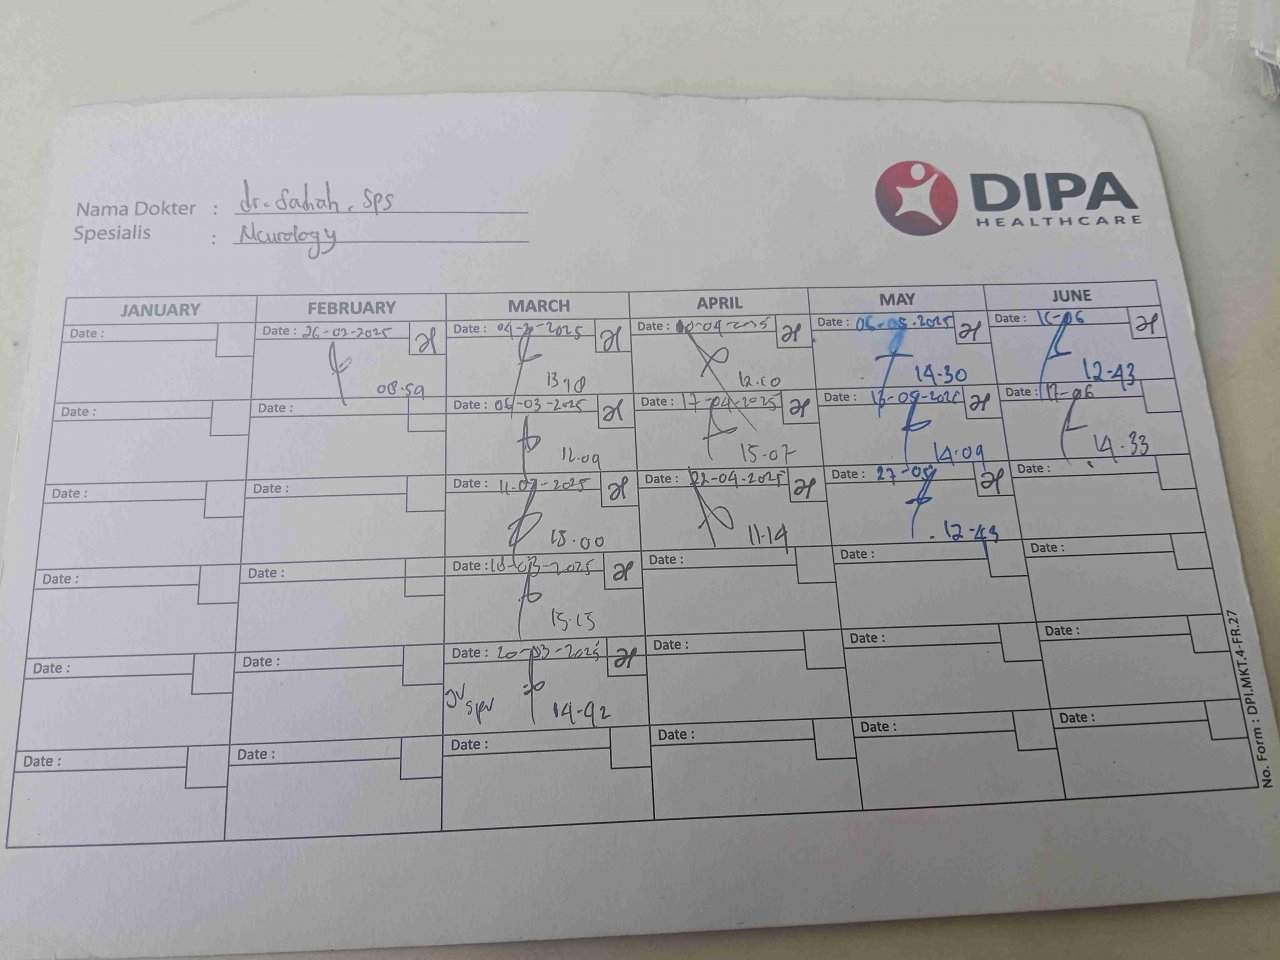 DIPA
HEALTHCARE
Nama Dokter : dr. Sahah. Sps
Spesialis : Neurology
JANUARY FEBRUARY MARCH APRIL MAY JUNE
Date : Date : 26-02-2025 Date : 04- -2025 Date : -04-2025 Date : 06-05-2025 Date : 16-06
08.59 13 18 12.10 14-30 12-43
Date : Date : Date : 06-03-2025 Date : 17-04-2025 Date : 13-05-2025 Date : 17-06
12.09 15-07 14.09 14.33
Date : Date : Date : 11-03-2025 Date : 22-04-2025 Date : 27-05 Date :
15.00 11-14 12-43
Date : Date : Date : 18-03-2025 Date : Date : Date :
15.15
Date : Date : Date : 20-03-2025 Date : Date : Date :
JV
spv 14-42
Date : Date : Date : Date : Date : Date :
No. Form : DPI.MKT.4-FR.27